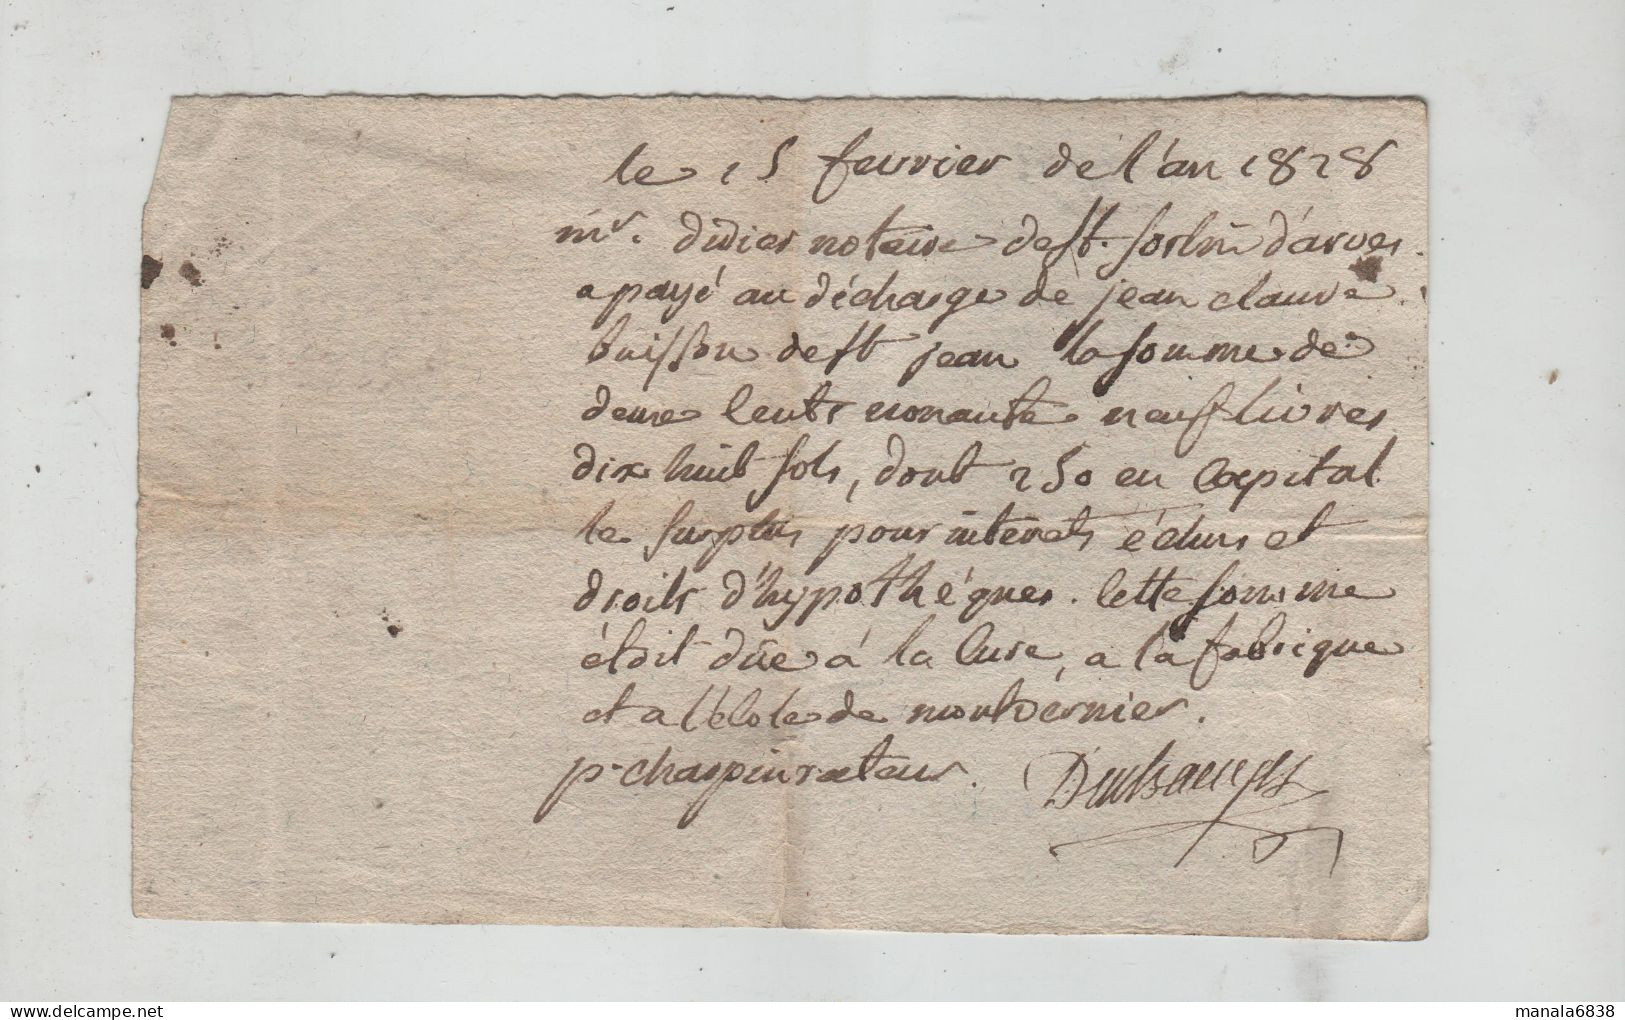 le 15 fevrier de l'an 1828
mr. didier notaire de st. sorlin d'arves
a payé au décharge de jean claude
buisson de st jean la somme de
deux cents nonante neuf livres
dix huit sols, dont 250 en capital
le surplus pour intérêts échus et
droits d'hypothéques. Cette somme
étoit dûe á la Cure, a la fabrique
et a l'école de montvernier.
p. charpin rateur.
manala6838